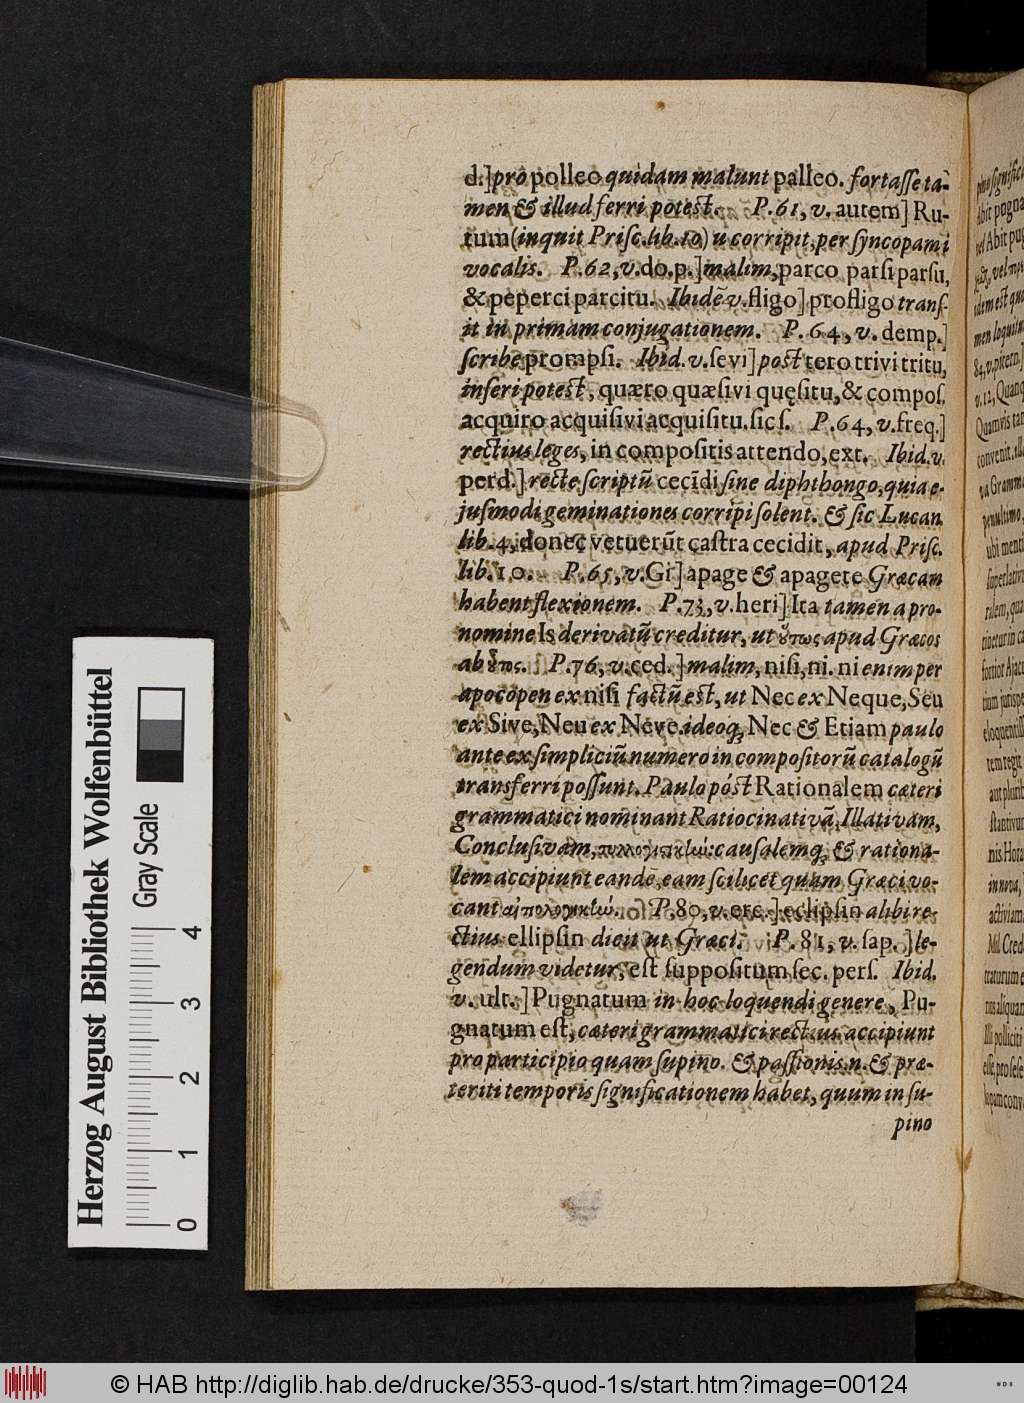 d.] pro polleo quidam malunt palleo. fortaſſe ta-
men & illud ferri poteſt. P. 61, v. autem] Ru-
tum (inquit Priſc. lib. 10) u corripit, per ſyncopam i
vocalis. P. 62, v. do. p.] malim, parco parſi parſu,
& peperci parcitu. Ibidē v. fligo] profligo tranſ-
it in primam conjugationem. P. 64, v. demp.]
ſcribe prompſi. Ibid. v. ſevi] poſt tero trivi tritu,
inſeri poteſt, quæro quæſivi quęſitu, & compoſ.
acquiro acquiſivi acquiſitu. ſic ſ. P. 64, v. freq.]
rectius leges, in compoſitis attendo, ext. Ibid. v.
perd.] recte ſcriptū cecīdi ſine diphthongo, quia e-
juſmodi geminationes corripi ſolent. & ſic Lucan.
lib. 4, donec vetuerūt caſtra cecidit, apud Priſc.
lib. 10. P. 65, v. Gi] apage & apagete Græcan
habent flexionem. P. 73, v. heri] Ita tamen a pro-
nomine Is derivatū creditur, ut ὅπως apud Græcos
ab P. 76, v. ced.] malim, niſi, ni. ni enim per
apocopen ex niſi factū eſt, ut Nec ex Neque, Seu
ex Sive, Neu ex Neve. ideoq; Nec & Etiam paulo
ante ex ſimpliciū numero in compoſitorū catalogū
transferri poſſunt. Paulo póſt Rationalem cæteri
grammatici nominant Ratiocinativā, Illativam,
Concluſivam, συλλογιστικὼ: cauſalemq; & rationa-
lem accipiunt eandē, eam ſcilicet quam Græci vo-
cant P. 80, v. erc.] eclipſin alibi re-
ctius ellipſin dicit ut Græci. P. 81, v. ſap.] le-
gendum videtur, eſt ſuppoſitum ſec. perſ. Ibid.
v. ult.] Pugnatum in hoc loquendi genere, Pu-
gnatum eſt, cæteri grammatici rectius accipiunt
pro participio quam ſupino. & paſſionis.n. & præ-
teriti temporis ſignificationem habet, quum in ſu-
pino
Herzog August Bibliothek Wolfenbüttel
Gray Scale
0 1 2 3 4
© HAB http://diglib.hab.de/drucke/353-quod-1s/start.htm?image=00124